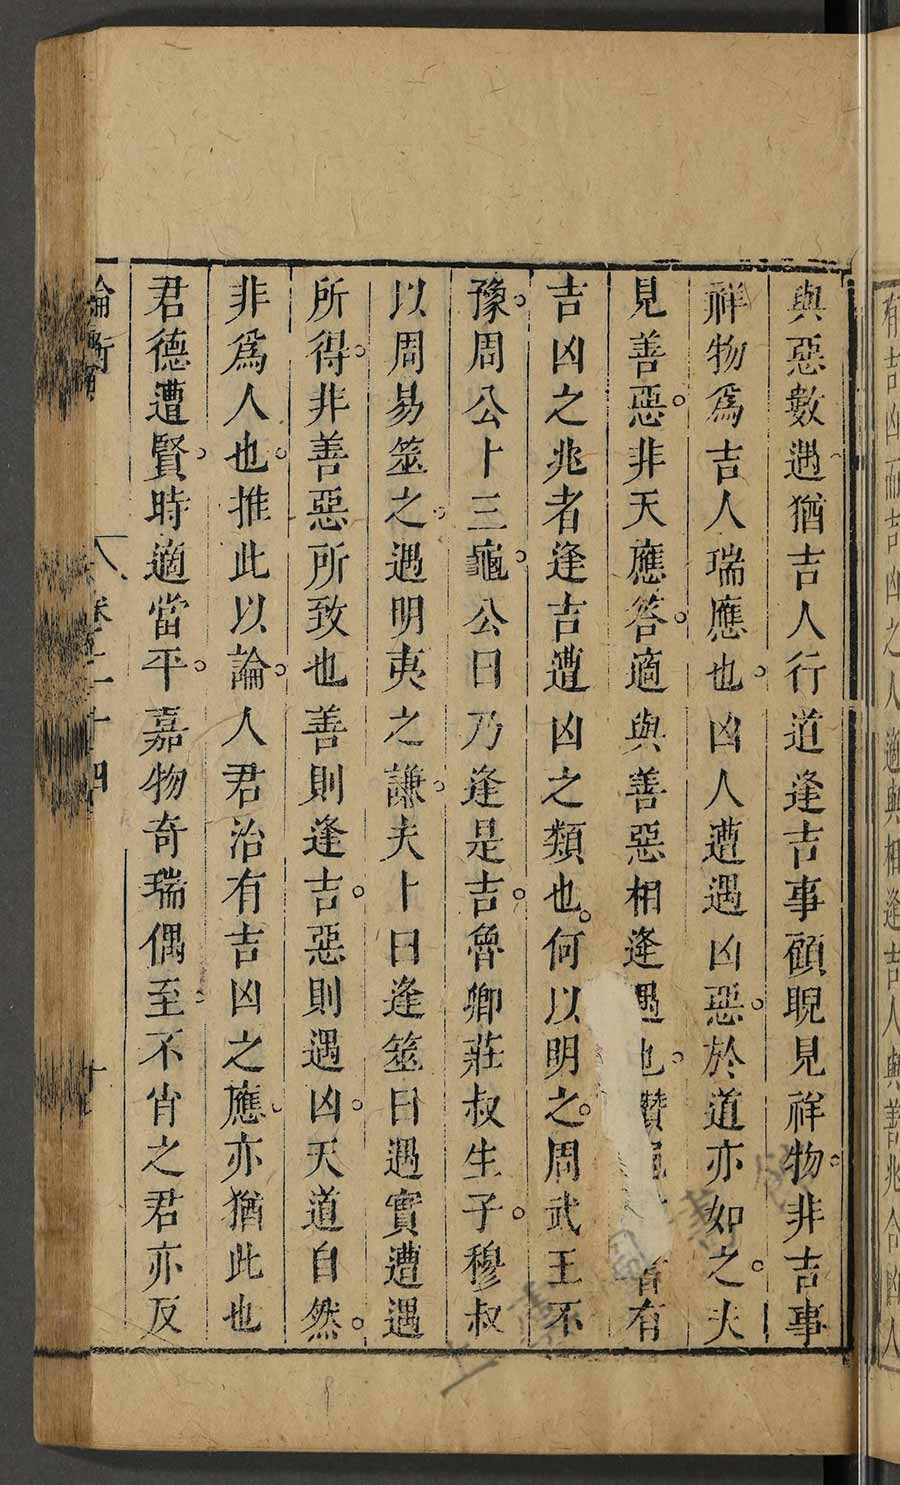 與惡數遇猶吉人行道逢吉事顧睨見祥物非吉事
祥物爲吉人瑞應也。凶人遭遇凶惡。於道亦如之。夫
見善惡。非天應答。適與善惡相逢遇也。鑽 者有
吉凶之兆者逢吉遭凶之類也。何以明之。周武王不
豫。周公卜三龜。公曰乃逢是吉。魯卿莊叔生子。穆叔
以周易筮之。遇明夷之謙。夫卜曰逢筮曰遇實遭遇
所得。非善惡所致也善則逢吉。惡則遇凶。天道自然。
非爲人也。推此以論。人君治有吉凶之應。亦猶此也
君德遭賢。時適當平。嘉物奇瑞偶至不肖之君亦反
論衡 卷二十四 十
有吉凶而吉凶之人適與相逢吉人與善兆合凶人